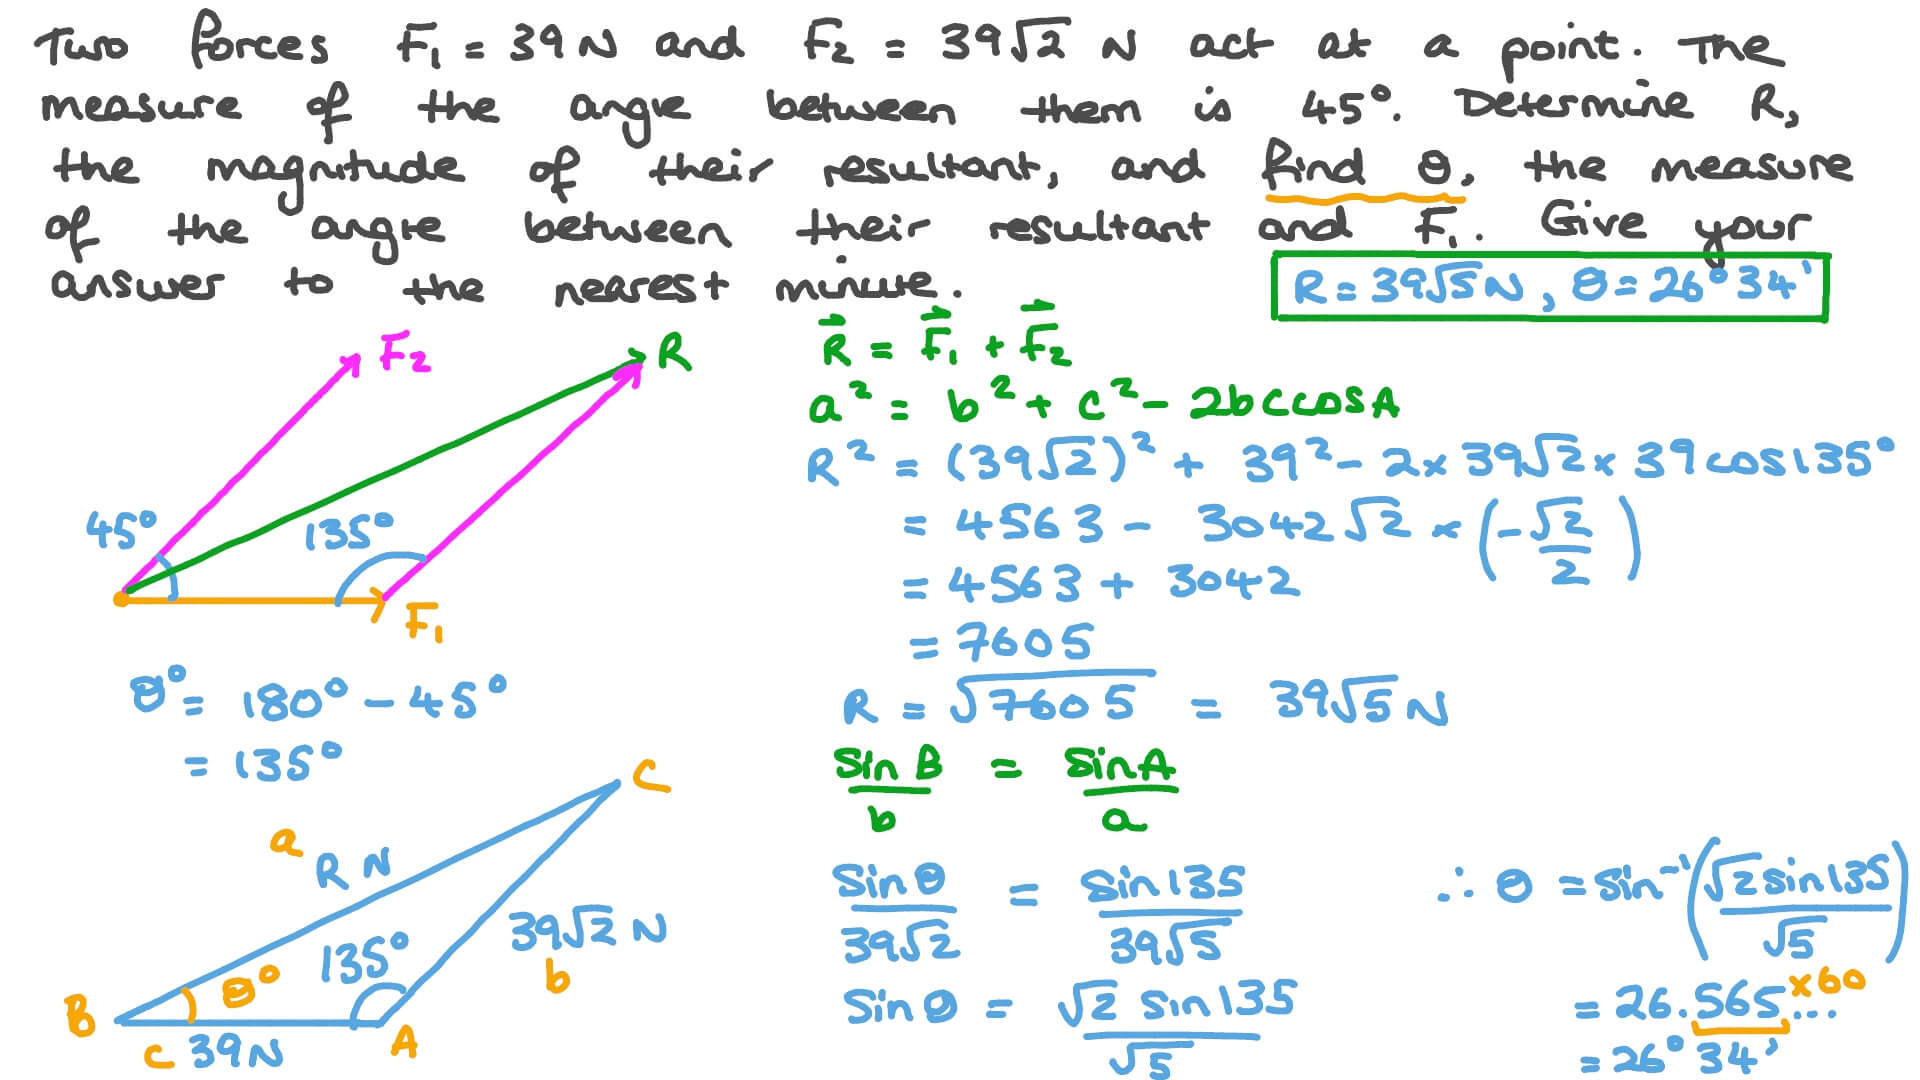 Two forces F₁ = 39 N and F₂ = 39√2 N act at a point. The
measure of the angle between them is 45°. Determine R,
the magnitude of their resultant, and find θ, the measure
of the angle between their resultant and F₁. Give your
answer to the nearest minute.
R = 39√5 N, θ = 26° 34'
F₂
R
45°
135°
F₁
θ° = 180° - 45°
= 135°
C
a
R N
39√2 N
b
135°
θ°
B
c 39 N
A
R⃗ = F⃗₁ + F⃗₂
a² = b² + c² - 2bccosA
R² = (39√2)² + 39² - 2 × 39√2 × 39cos135°
= 4563 - 3042√2 × (-√2/2)
= 4563 + 3042
= 7605
R = √7605 = 39√5 N
sin B / b = sin A / a
sin θ / 39√2 = sin 135 / 39√5
sin θ = √2 sin 135 / √5
∴ θ = sin⁻¹(√2 sin 135 / √5)
= 26.565... ×60
= 26° 34'